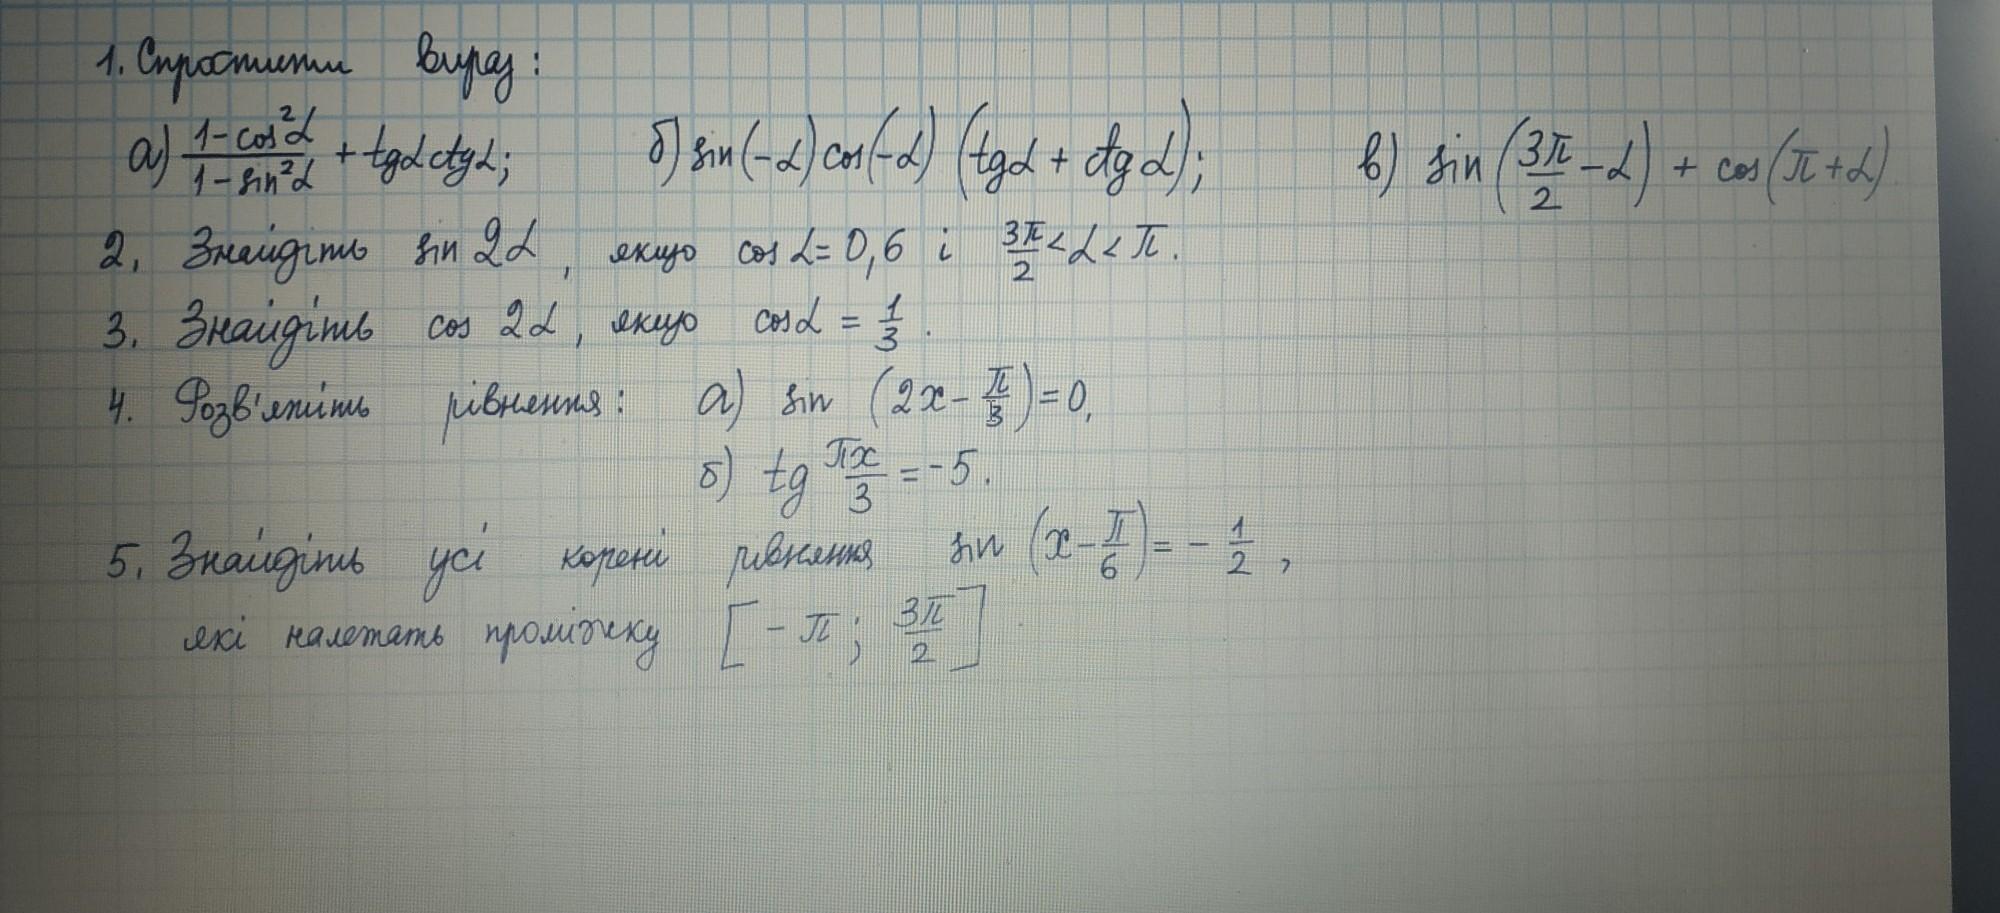 1. Спростити вираз:
а) (1-cos²α)/(1-sin²α) + tgα ctgα; б) sin(-α) cos(-α) (tgα + ctgα); в) sin(3π/2 - α) + cos(π+α)
2. Знайдіть sin 2α, якщо cos α = 0,6 і 3π/2 < α < π.
3. Знайдіть cos 2α, якщо cosα = 1/3.
4. Розв'яжіть рівнення: а) sin (2x - π/3) = 0,
б) tg πx/3 = -5.
5. Знайдіть усі корені рівняння sin (x - π/6) = - 1/2,
які належать проміжку [-π; 3π/2]